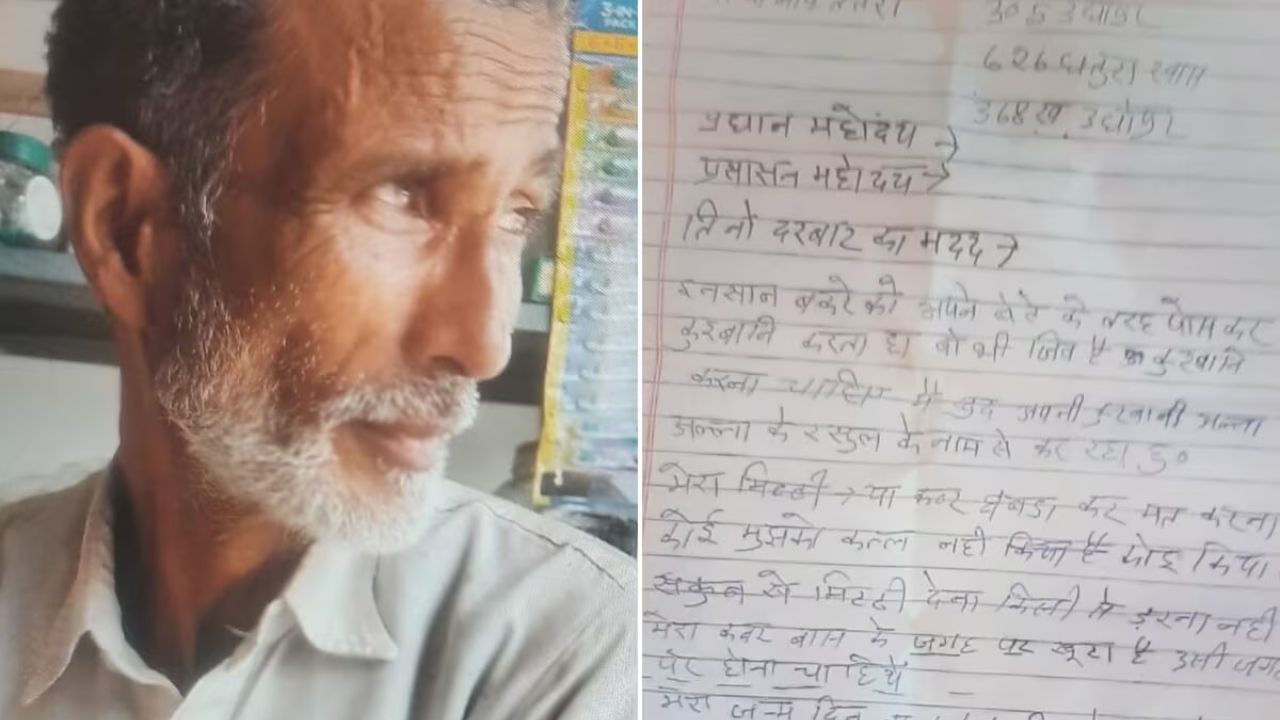 3-IN
PACK
305 उद्योग
626 धतुरा खाता
368 ख. उद्योग
प्रधान महोदय →
प्रसासन महोदय →
तिनो दरबार का मदद →
इनसान बकरे को अपने बेटे के तरह पोस कर
कुरबानि करता है। वो भी जिव है कुरबानि
करना चाहिए मै खुद अपनी कुरबानी अल्ला
अल्ला के रसुल के नाम से कर रहा हु०
मेरा मिट्टी → या कबर घबडा कर मत करना
कोई मुझको कत्ल नही किया है कोइ किया
सकुन से मिट्टी देना किसी से डरना नही
मेरा कबर बास के जगह पर खूटा है उसी जगह
पर होना चाहिये
मेरा जन्म दिन